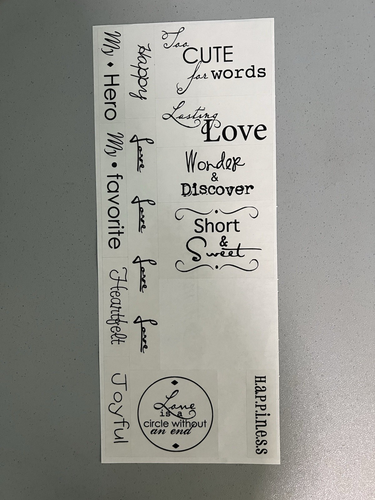 Too
CUTE
for words
Lasting
Love
Wonder
&
Discover
Short
&
Sweet
Happy
Love
Love
Love
Love
My • Hero
My • favorite
Heartfelt
Joyful
Love
is a
circle without
an end
Happiness